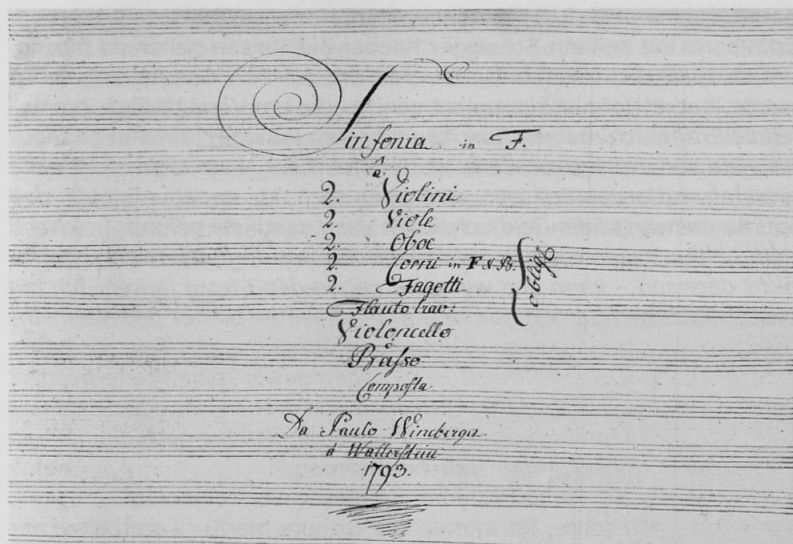 Sinfonia in F.
a
2. Violini
2. Viole
2. Oboe
2. Corni in F & B.
2. Fagotti
oblig
Flauto trav:
Violoncello
Basso
Composta
Da Paulo Wineberger
á Wallerstein
1793.